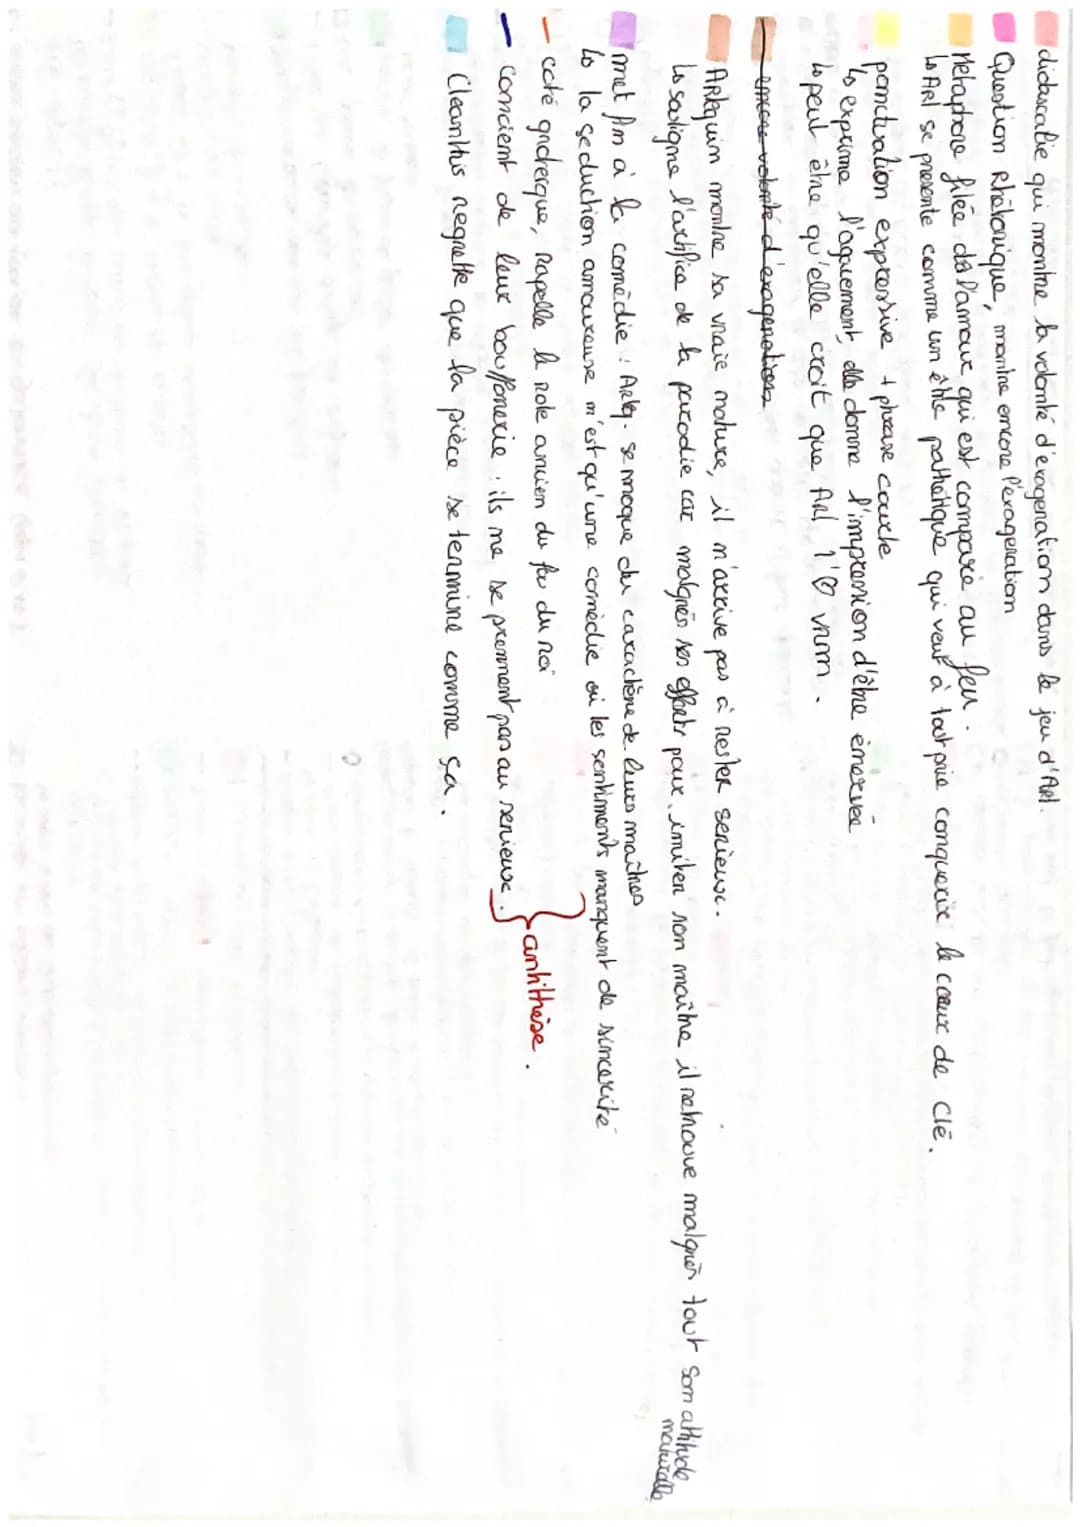 didascalie qui montre la volonté d'exageration dans le jeu d'Arl.
Question Rhétorique, montre encore l'exageration
Métaphore filée de l'amour qui est comparé au feu.
↳ Arl se presente comme un être pathétique qui veut à tout prie conquerir le cœur de Clé.
ponctuation expressive + phrase courte
↳ exprime l'agacement, elle donne l'impression d'être énervée
↳ peut être qu'elle croit que Arl. l'♡ vrmm.
encore volonté d'exageration
Arlequin montre sa vraie nature, il n'arrive pas à rester serieux.
↳ souligne l'artifice de la parodie car malgrés ses efforts pour imiter son maître il retrouve malgrés tout son attitude naturelle
met fin à la comédie : Arleq. se moque du caractère de leurs maîtres
↳ la seduction amoureuse n'est qu'une comédie où les sentiments manquent de sincerité
coté grotesque, rapelle le role ancien du fou du roi
conscient de leur bouffonerie : ils ne se prennent pas au serieux.
antithèse.
Cleanthis regrette que la pièce se termine comme sa.